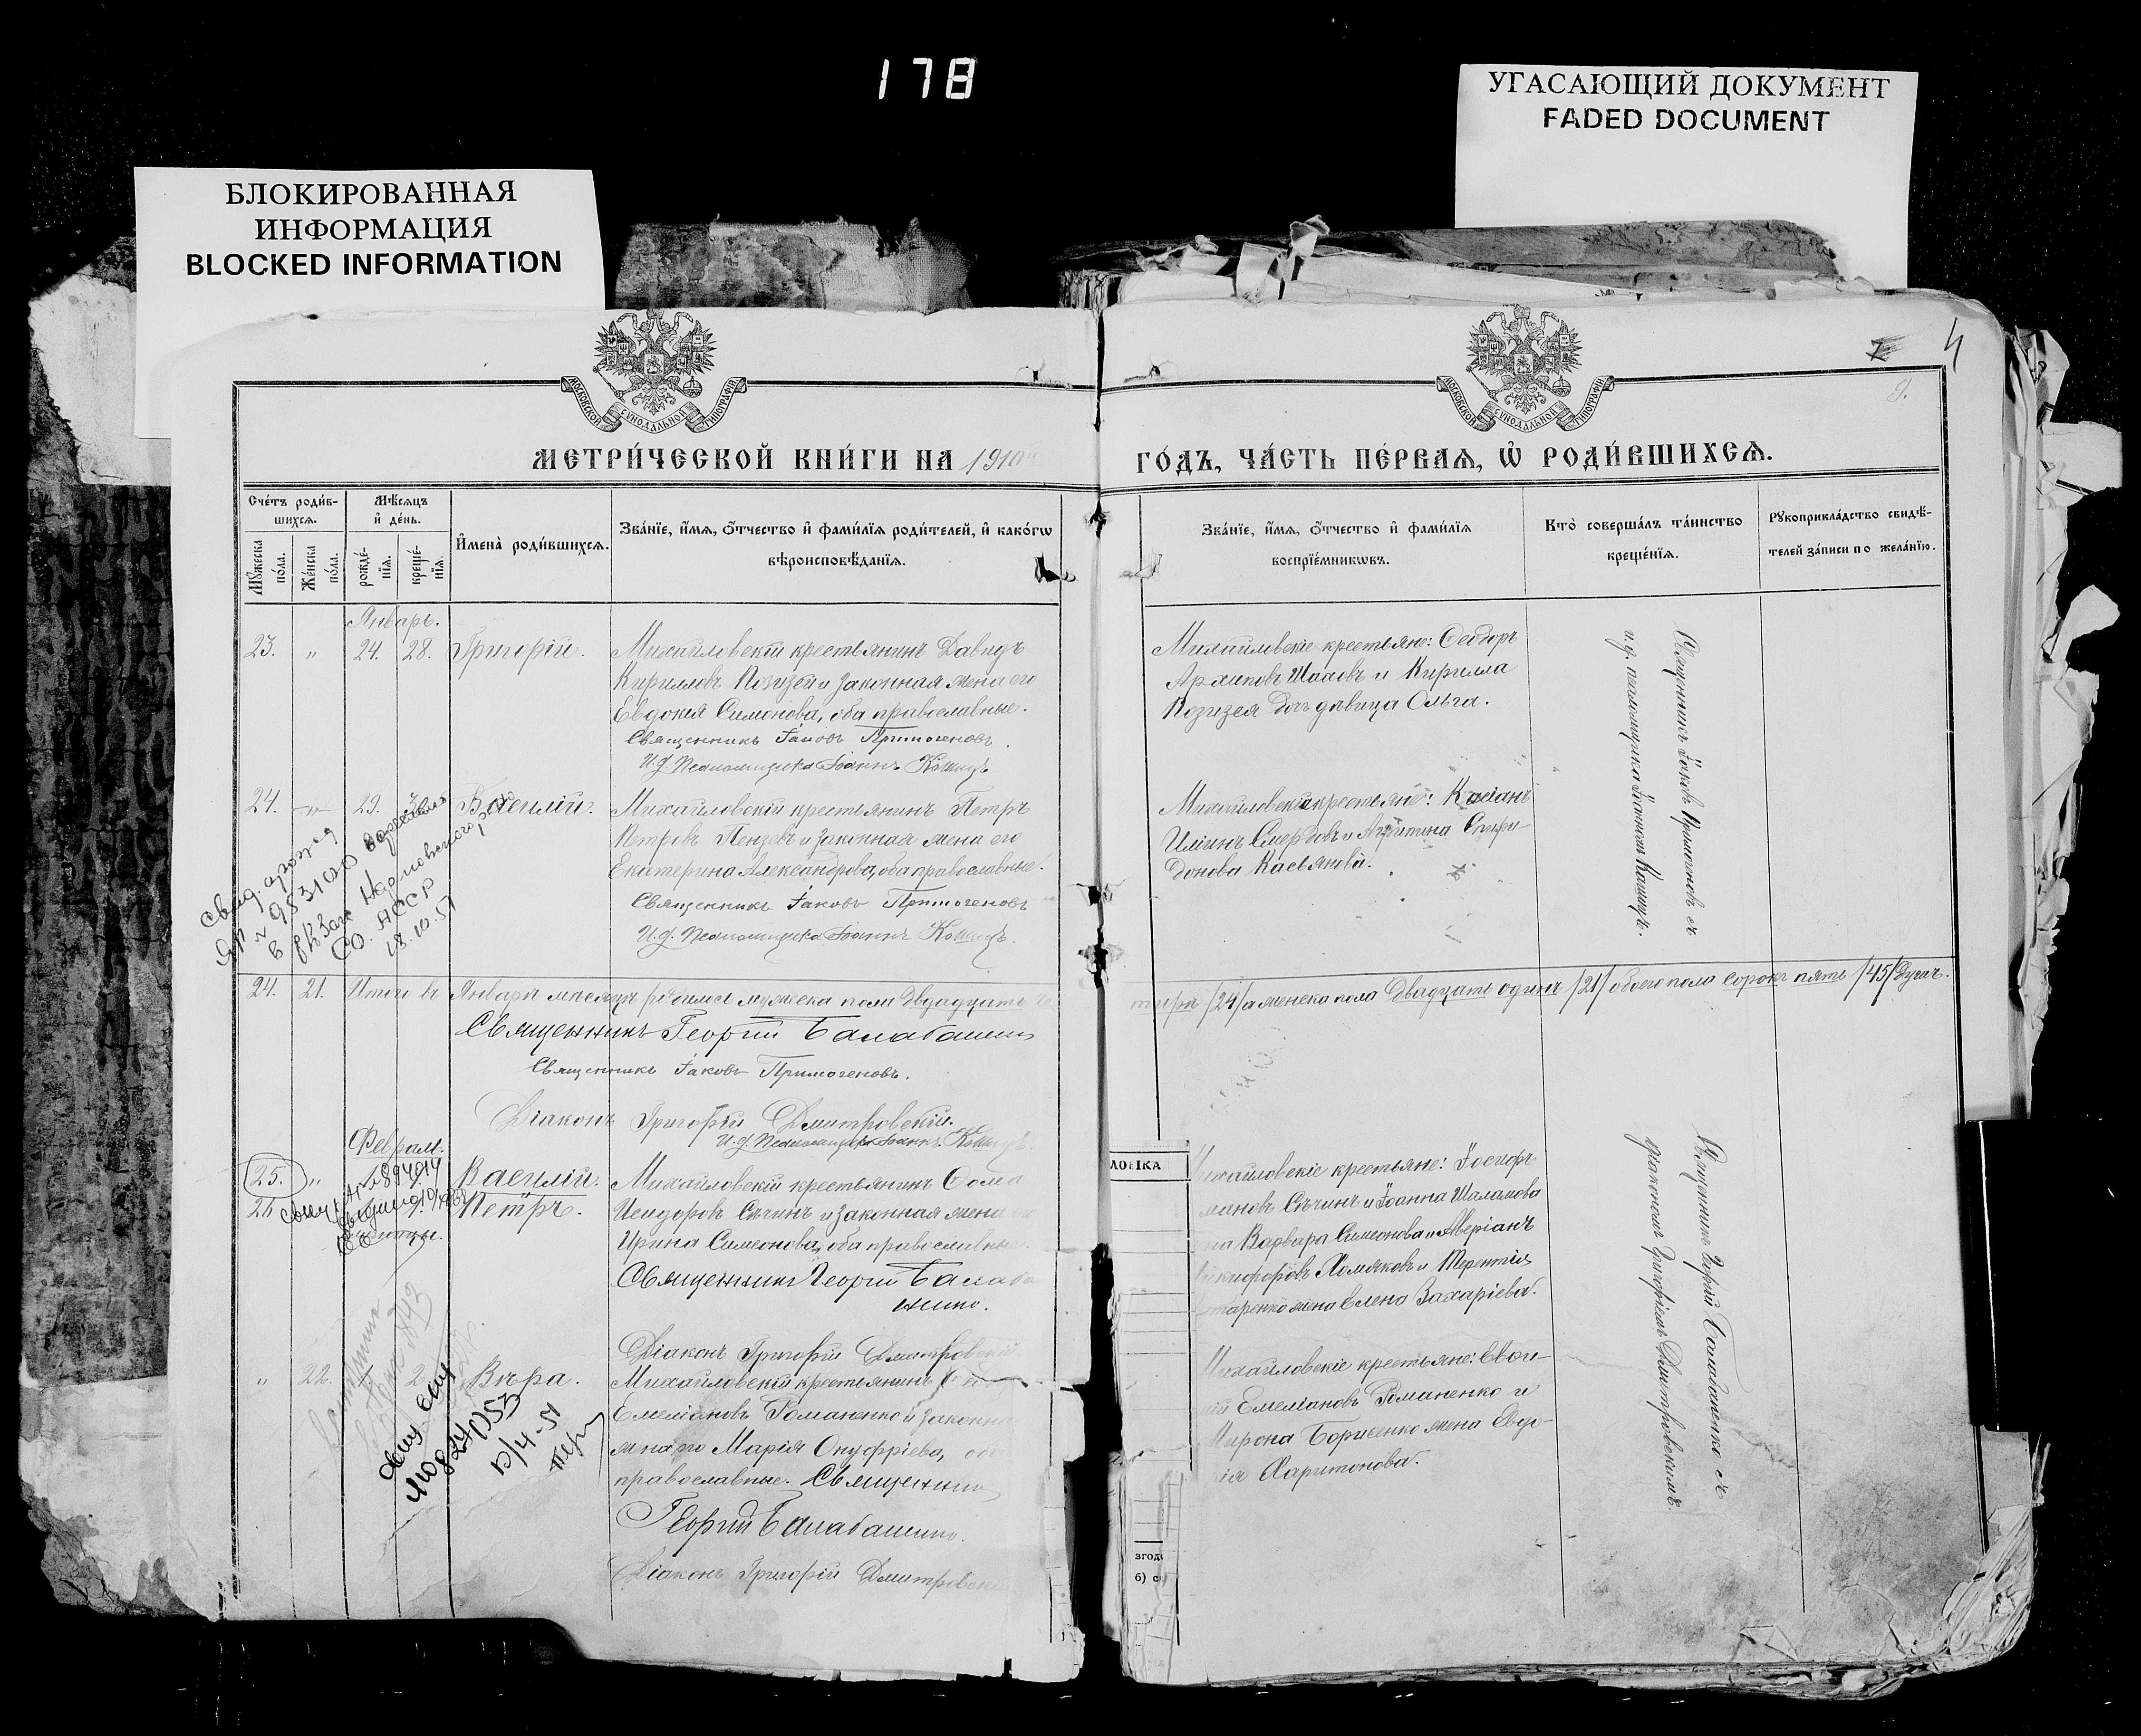 178
УГАСАЮЩИЙ ДОКУМЕНТ
FADED DOCUMENT
БЛОКИРОВАННАЯ
ИНФОРМАЦИЯ
BLOCKED INFORMATION
4
МОСКОВСКОЙ СУНОДАЛЬНОЙ ТИПОГРАФІИ
МОСКОВСКОЙ СУНОДАЛЬНОЙ ТИПОГРАФІИ
МЕТРИ́ЧЕСКОЙ КНИ́ГИ НА 1910
ГО́ДЪ, ЧА́СТЬ ПЕ́РВАѦ, Ѡ РОДИ́ВШИХСѦ.
Сче́тъ роди́в-
шихсѧ.
Мꙋ́жеска по́ла.
Же́нска по́ла.
Мѣ́сѧцъ
и҆ де́нь.
рожде́-
нїѧ.
креще́-
нїѧ.
И҆мена̀ роди́вшихсѧ.
Зва́нїе, и҆́мѧ, ѻ҆́тчество и҆ фами́лїѧ роди́телей, и҆ како́гѡ
вѣроисповѣ́данїѧ.
Зва́нїе, и҆́мѧ, ѻ҆́тчество и҆ фами́лїѧ
воспрїе́мникѡвъ.
Кто̀ соверша́лъ та́инство
креще́нїѧ.
Рꙋкоприкла́дство свидѣ́-
телей за́писи по жела́нїю.
Январь.
23. „ 24. 28. Григорій.
Михайловскій крестьянинъ Давидъ
Кирилловъ Козизей и законная жена его
Евдокія Симонова, оба православные.
Священникъ Іаковъ Примогеновъ.
И.д. Псаломщика Іоаннъ Кошицъ
Михайловскіе крестьяне: Ѳеодоръ
Архиповъ Шаховъ и Кирилла
Козизея дочь дѣвица Ольга.
Священникъ Іаковъ Примогеновъ съ
и.д. псаломщика Іоанномъ Кошицъ.
24. „ 29. Василій.
Михайловскій крестьянинъ Петръ
Петровъ Пензевъ и законная жена его
Екатерина Александрова, оба православные.
Священникъ Іаковъ Примогеновъ
И.д. Псаломщика Іоаннъ Кошицъ.
Михайловскіе крестьяне: Касіанъ
Ильинъ Смердовъ и Агрипина Спири-
донова Касьянова.
18.10.51
24. 21. Итого въ Январѣ мѣсяцѣ родилось мужеска пола двадцать че
тыре /24/ а женска пола двадцать одинъ /21/ обоего пола сорокъ пять /45/ душъ.
Священникъ Георгій Балабаненко
Священникъ Іаковъ Примогеновъ.
Діаконъ Григорій Дмитровскій.
И.д. Псаломщика Іоаннъ Кошицъ.
Феврал.
25. „ Василій.
26 Петръ.
Михайловскій крестьянинъ Ѳома
Исидоровъ Сѣчинъ и законная жена его
Ирина Симеонова, оба православные.
Священникъ Георгій Балаба
ненко.
Діаконъ Григорій Дмитровскій
Михайловскіе крестьяне: Іосифъ
мановъ Сѣчинъ и Іоанна Шаламова
на Варвара Симеонова и Аверіанъ
Никифоровъ Хомяковъ и Терентія
таренко жена Елена Захаріева.
Священникъ Георгій Балабаненко съ
діакономъ Григоріемъ Дмитровскимъ.
„ 22. 1 2 Вѣра.
Михайловскій крестьянинъ
Емеліановъ Романенко и законная
жена его Марія Онуфріева, об
православные. Священникъ
Георгій Балабаненко.
Діаконъ Григорій Дмитровскій
Михайловскіе крестьяне: Евѳи-
мій Емеліановъ Романенко и
Мирона Борисенко жена Евдо-
кія Харитонова.